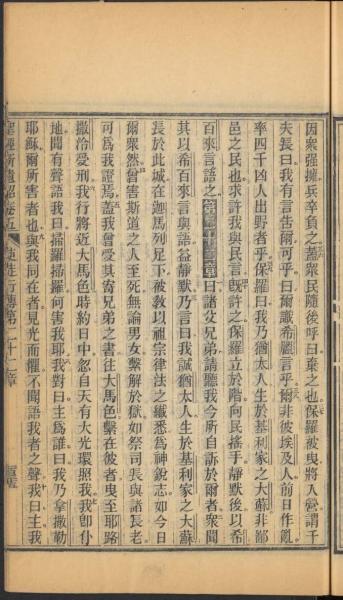 因衆强擁兵卒負之蓋衆民隨後呼曰棄之也保羅被曳將入營謂千
夫長曰我有言告爾可乎曰爾識希臘言乎爾非彼埃及人前日作亂
率四千凶人出野者乎保羅曰我乃猶太人生於基利家之大蘇非鄙
邑之民也求許我與民言旣許之保羅立於階向民搖手靜默後以希
百來言語之第二十二章曰諸父兄弟請聽我今所自訴於爾者衆聞
其以希百來言與語益靜默乃言曰我誠猶太人生於基利家之大蘇
長於此城在迦馬列足下被教以祖宗律法之纖悉爲神銳志如今日
爾衆然曾害斯道之人至死無論男女繫解於獄如祭司長與諸長老
可爲我證焉蓋我曾受其寄兄弟之書往大馬色繫在彼者曳至耶路
撒冷受刑我行將近大馬色時約日中忽自天有大光環照我我卽仆
地聞有聲語我曰掃羅掃羅何害我耶我對曰主爲誰曰我乃拿撒勒
耶穌爾所害者也與我同在者見光而懼不聞語我者之聲我曰主我
聖經新遺詔卷五 使徒行傳第二十二章